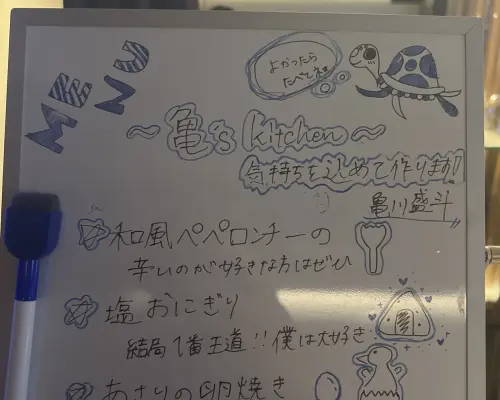 MENU
よかったら
たべてネ
〜亀's kitchen〜
気持ちを込めて作ります!
亀川盛斗
☆和風ペペロンチーの
辛いのが好きな方はぜひ
☆塩おにぎり
結局1番王道!!僕は大好き
☆あさりの卵焼き